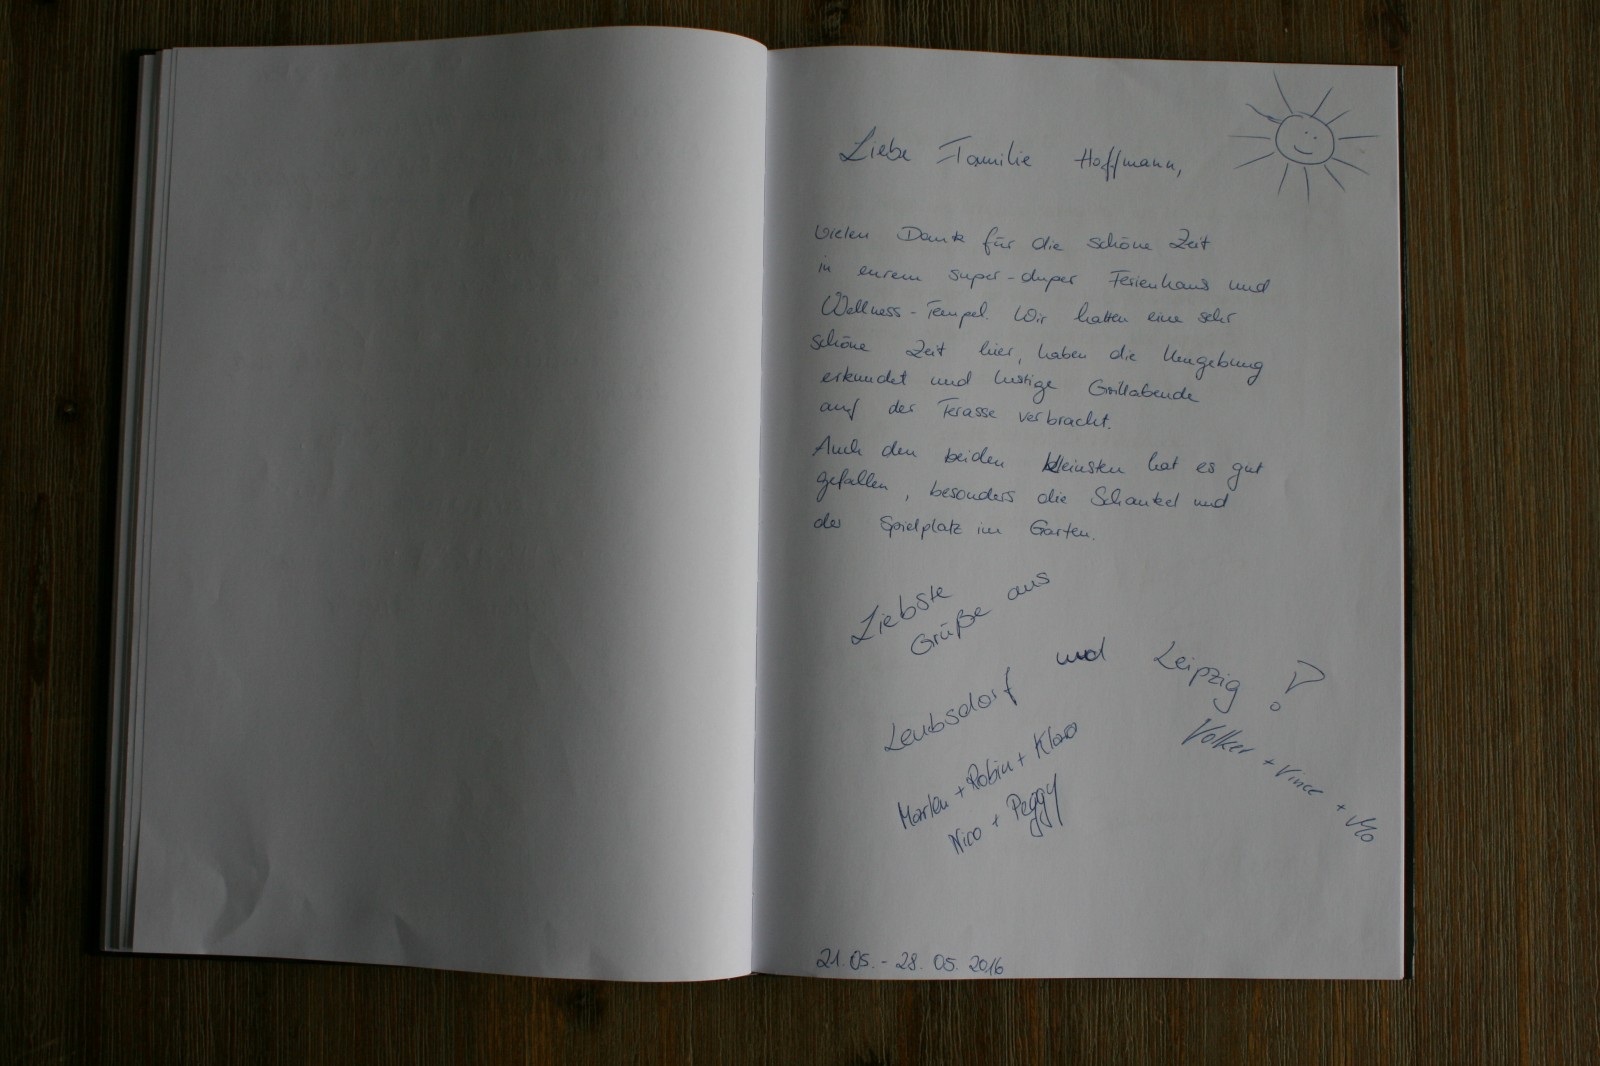 Liebe Familie Hoffmann,
vielen Dank für die schöne Zeit
in eurem super-duper Ferienhaus und
Wellness-Tempel. Wir hatten eine sehr
schöne Zeit hier, haben die Umgebung
erkundet und lustige Grillabende
auf der Terasse verbracht.
Auch den beiden Kleinsten hat es gut
gefallen, besonders die Schaukel und
der Spielplatz im Garten.
Liebste
Grüße aus
Leubsdorf und Leipzig!
Marlen + Robin + Klara
Nico + Peggy
Volker + Vince + Mo
21.05. - 28.05.2016